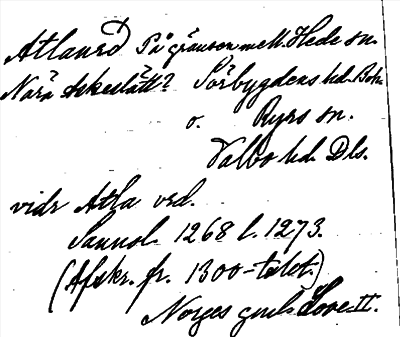 Atlaurd På gränsen mell. Hede sn.
Nära Askeslätt? Sörbygdens hd. Boh.
o. Ryrs sn.
Valbo hd. Dls.
vidr Atla urd.
Sannol. 1268 l. 1273.
(Afskr. fr. 1300-talet.)
Norges gml. Love II.